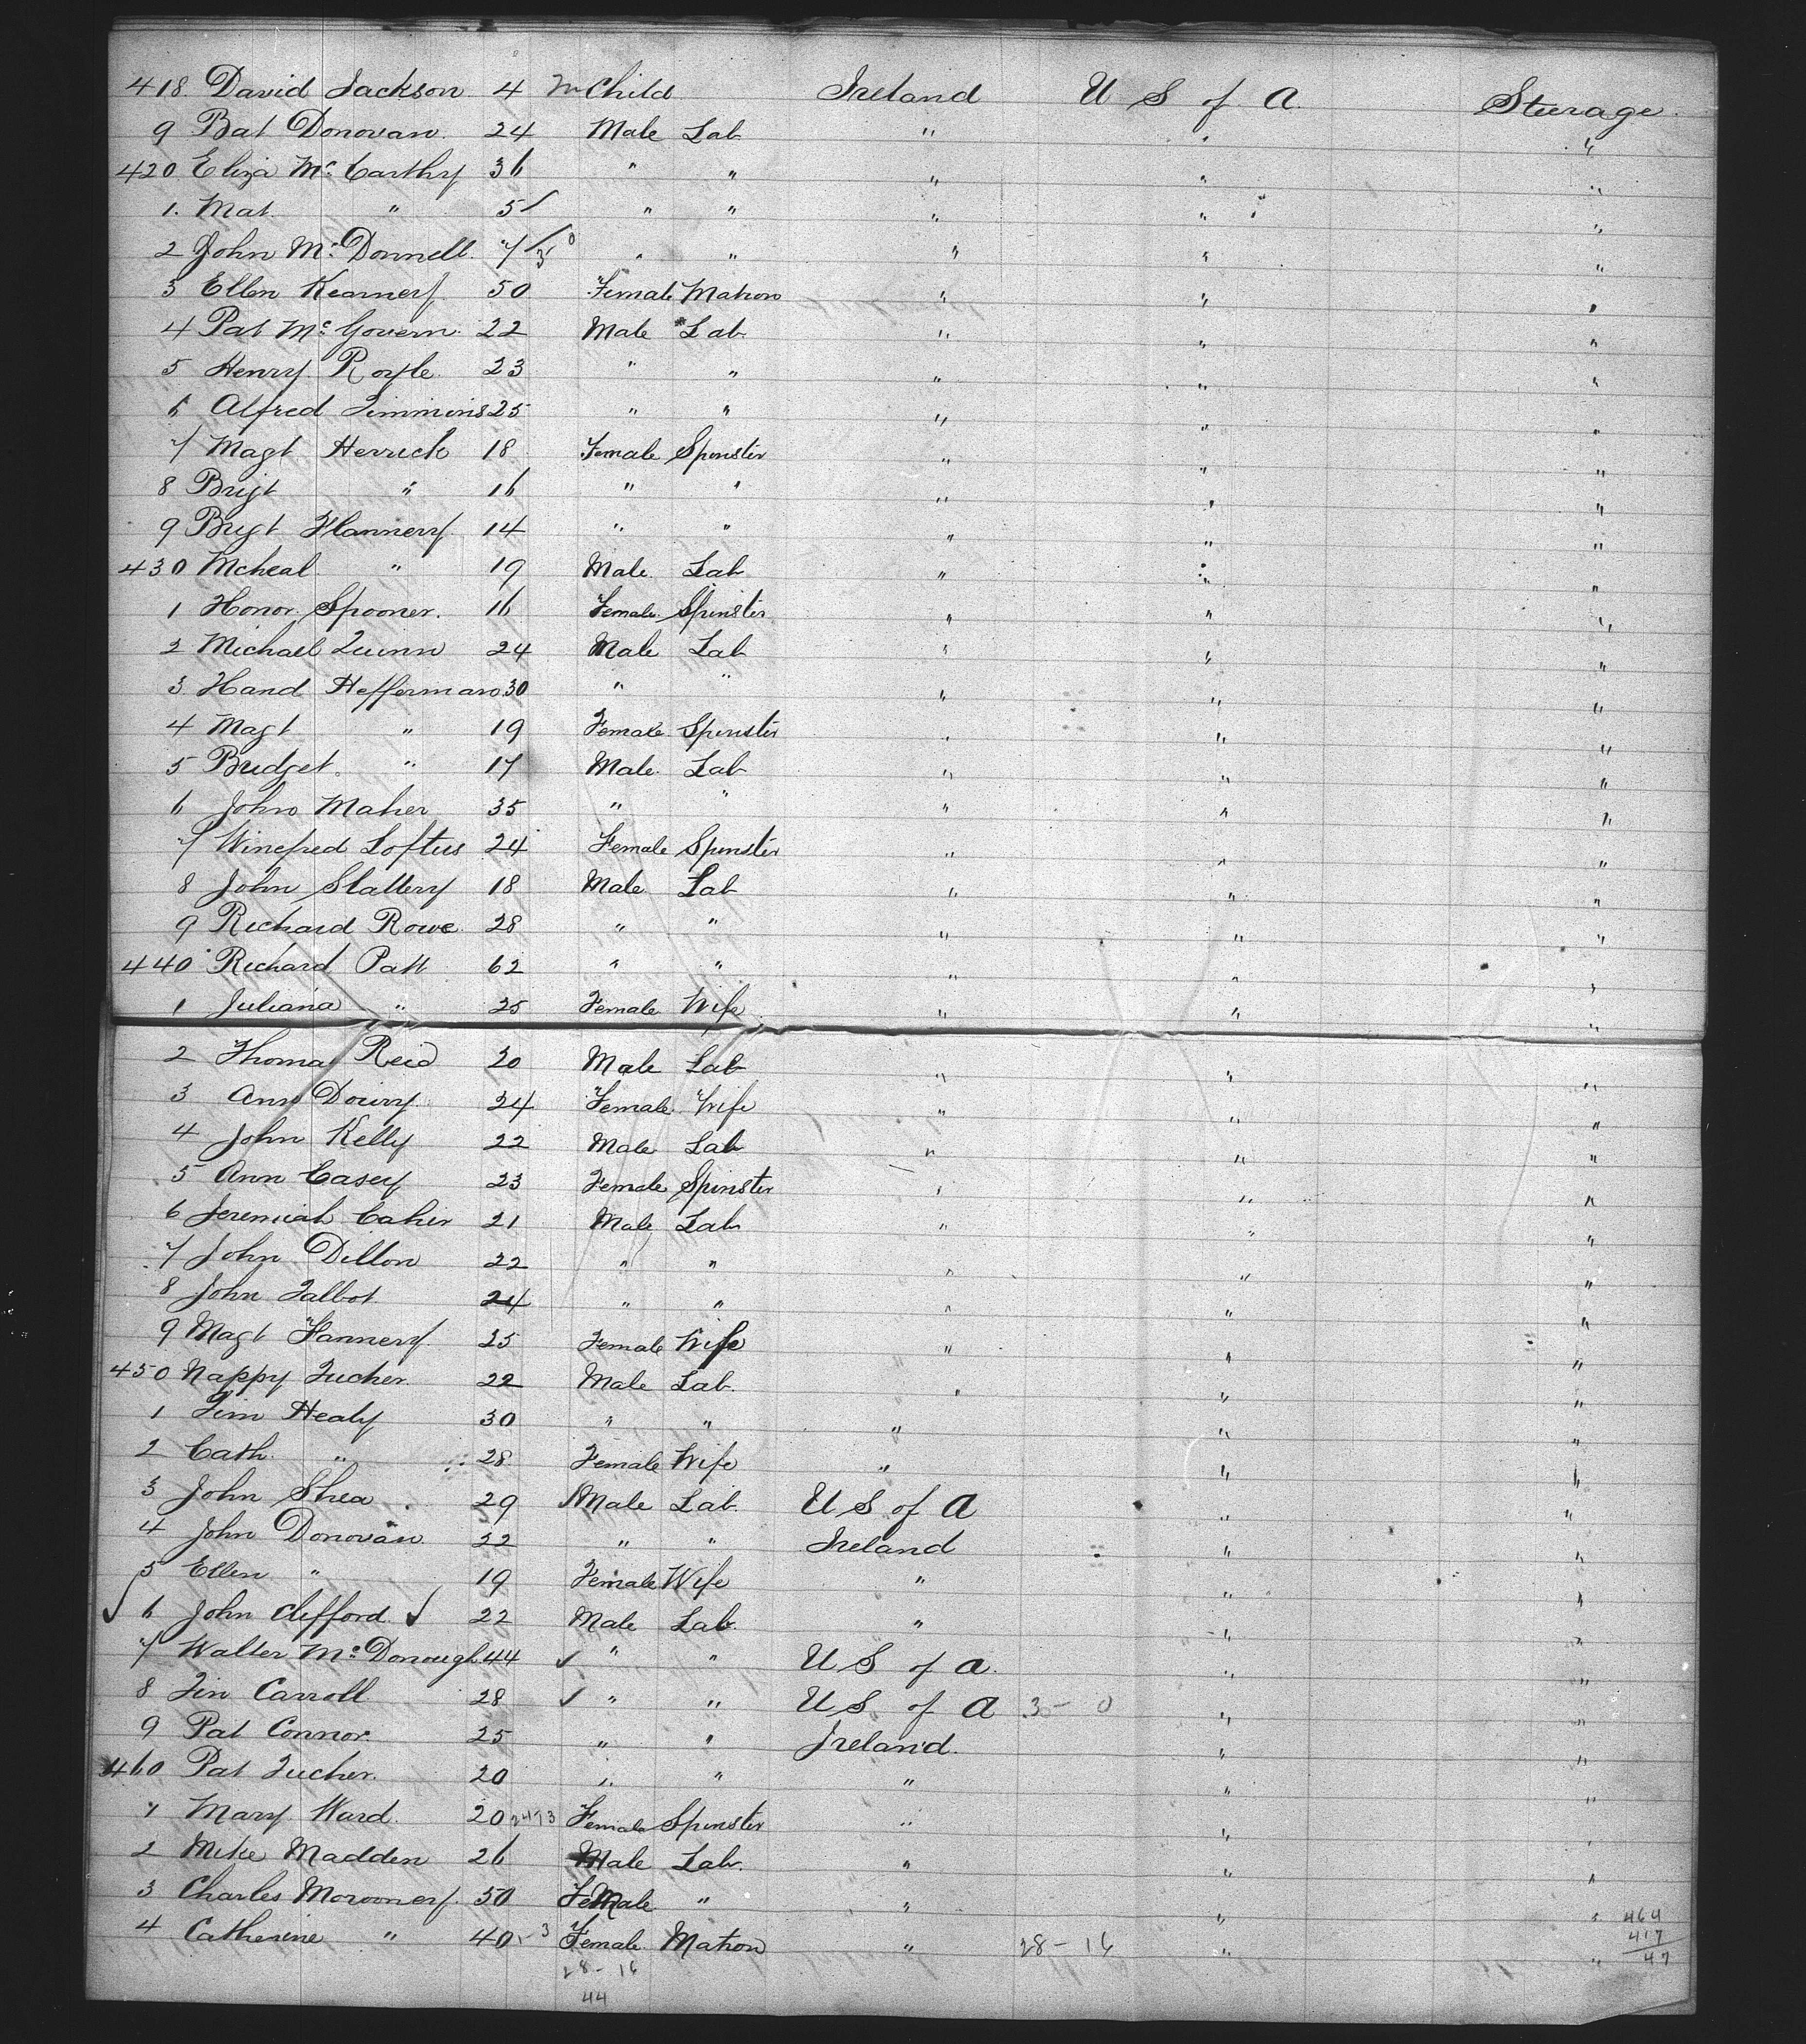 418. David Jackson 4 m Child Ireland U S of A. Steerage.
9 Bat Donovan 24 Male Lab " " "
420 Eliza Mc Carthy 36 " " " " "
1. Mat. " 5 " " " " "
2 John Mc Donnell. 7 " " " " "
3 Ellen Kearney 50 Female Matron " " "
4 Pat Mc Govern. 22 Male Lab. " " "
5 Henry Royle 23 " " " " "
6 Alfred Timmins 25 " " " " "
7 Magt Herrick 18 Female Spinster " " "
8 Brigt " 16 " " " " "
9 Brigt Flannery 14 " " " " "
430 Mcheal " 19 Male Lab " " "
1 Honor Spooner. 16 Female Spinster " " "
2 Michael Quinn 24 Male Lab " " "
3 Hand Heffernan 30 " " " " "
4 Magt " 19 Female Spinster " " "
5 Bridget. " 17 Male Lab " " "
6 John Maher 35 " " " " "
7 Winefred Loftus 24 Female Spinster " " "
8 John Slattery 18 Male Lab " " "
9 Richard Rowe 28 " " " " "
440 Richard Patt 62 " " " " "
1 Juliana " 25 Female Wife " " "
2 Thomas Reid 20 Male Lab " " "
3 Ann Dowry 24 Female Wife " " "
4 John Kelly 22 Male Lab " " "
5 Ann Casey 23 Female Spinster " " "
6 Jeremiah Caher 21 Male Lab " " "
7 John Dillon 22 " " " " "
8 John Talbot 24 " " " " "
9 Magt Flannery 25 Female Wife " " "
450 Nappy Tucher 22 Male Lab. " " "
1 Tim Healy 30 " " " " "
2 Cath. " 28 Female Wife " " "
3 John Shea 29 Male Lab. U S of A " "
4 John Donovan 22 " " Ireland " "
5 Ellen " 19 Female Wife " " "
6 John Clifford 22 Male Lab. " " "
7 Walter Mc Donough 44 " " U S of A. " "
8 Tim Carroll 28 " " U S of A 3 - 0 " "
9 Pat Connor 25 " " Ireland. " "
460 Pat Tucher. 20 " " " " "
1 Mary Ward. 20 Female Spinster " " "
2 Mike Madden 26 Male Lab. " " "
3 Charles Morooney 50 FeMale " " " "
4 Catherine " 40 Female Matron " 28 - 16 " "
464
417
47
28 - 16
44